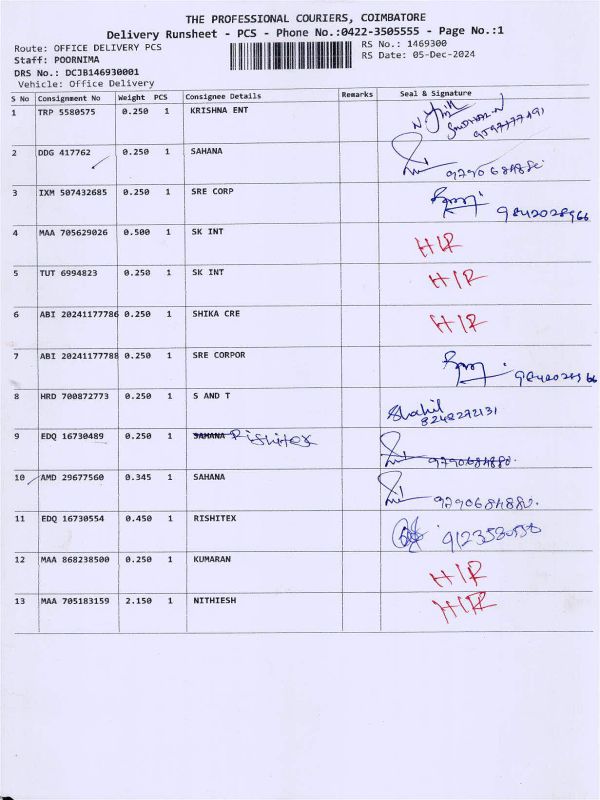 THE PROFESSIONAL COURIERS, COIMBATORE
Delivery Runsheet - PCS - Phone No.:0422-3505555 - Page No.:1
Route: OFFICE DELIVERY PCS RS No.: 1469300
Staff: POORNIMA RS Date: 05-Dec-2024
DRS No.: DCJB146930001
Vehicle: Office Delivery
S No Consignment No Weight PCS Consignee Details Remarks Seal & Signature
1 TRP 5580575 0.250 1 KRISHNA ENT
2 DDG 417762 0.250 1 SAHANA
3 IXM 507432685 0.250 1 SRE CORP 9842028966
4 MAA 705629026 0.500 1 SK INT HIR
5 TUT 6994823 0.250 1 SK INT HIR
6 ABI 20241177786 0.250 1 SHIKA CRE HIR
7 ABI 20241177788 0.250 1 SRE CORPOR
8 HRD 700872773 0.250 1 S AND T Shahil
8248272131
9 EDQ 16730489 0.250 1 SAHANA Rishitex 9790684880.
10 AMD 29677560 0.345 1 SAHANA 9790684880.
11 EDQ 16730554 0.450 1 RISHITEX
12 MAA 868238500 0.250 1 KUMARAN HIR
13 MAA 705183159 2.150 1 NITHIESH HIR